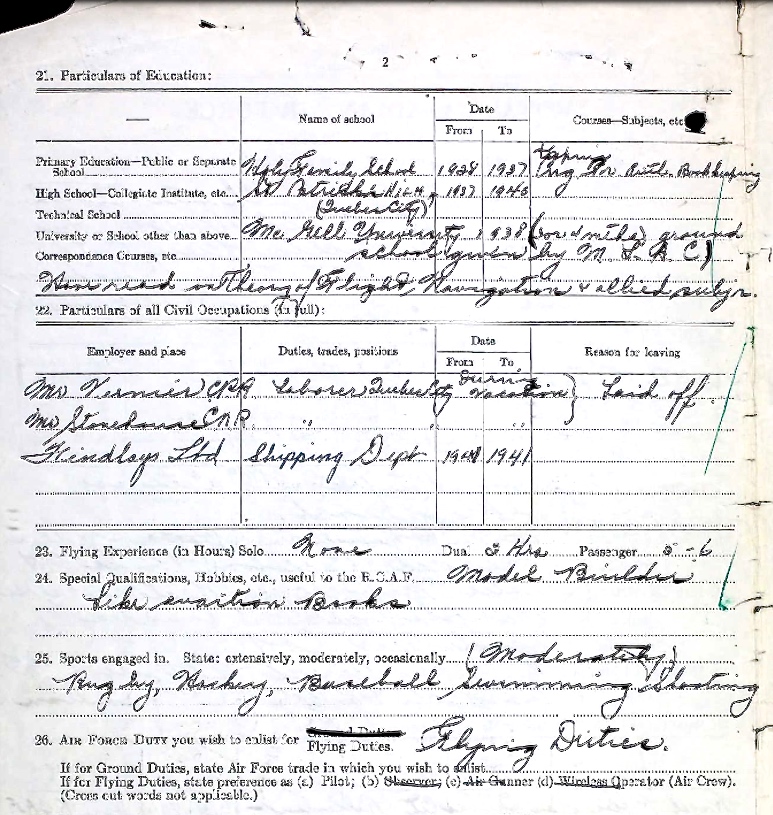 2
21. Particulars of Education:
— Name of school Date Courses—Subjects, etc.
From To
Primary Education—Public or Separate School Holy Family School 1928 1937 Eng Fr Arith Bookkeeping
typing
High School—Collegiate Institute, etc. St Patricks High 1937 1940
Technical School (Quebec City)
University or School other than above Mc Gill University 1938 (for 4 mths) ground
Correspondence Courses, etc. school given by M
Have read in Theory of Flight, Navigation & allied subjs.
22. Particulars of all Civil Occupations (in full):
Employer and place Duties, trades, positions Date Reason for leaving
From To
Mr Vernier CPR Laborer Quebec City During vacation } Laid off
Mr Stonehouse CNR " "
Ltd Shipping Dept 1941 1941
23. Flying Experience (in Hours) Solo None Dual Hrs Passenger 5-6
24. Special Qualifications, Hobbies, etc., useful to the R.C.A.F. Model Builder
Like Books
25. Sports engaged in. State: extensively, moderately, occasionally (Moderately)
Rugby, Hockey, Baseball Swimming Shooting
26. AIR FORCE DUTY you wish to enlist for Ground Duties
Flying Duties. Flying Duties.
If for Ground Duties, state Air Force trade in which you wish to enlist
If for Flying Duties, state preference as (a) Pilot; (b) Observer; (c) Air Gunner (d) Wireless Operator (Air Crew).
(Cross out words not applicable.)